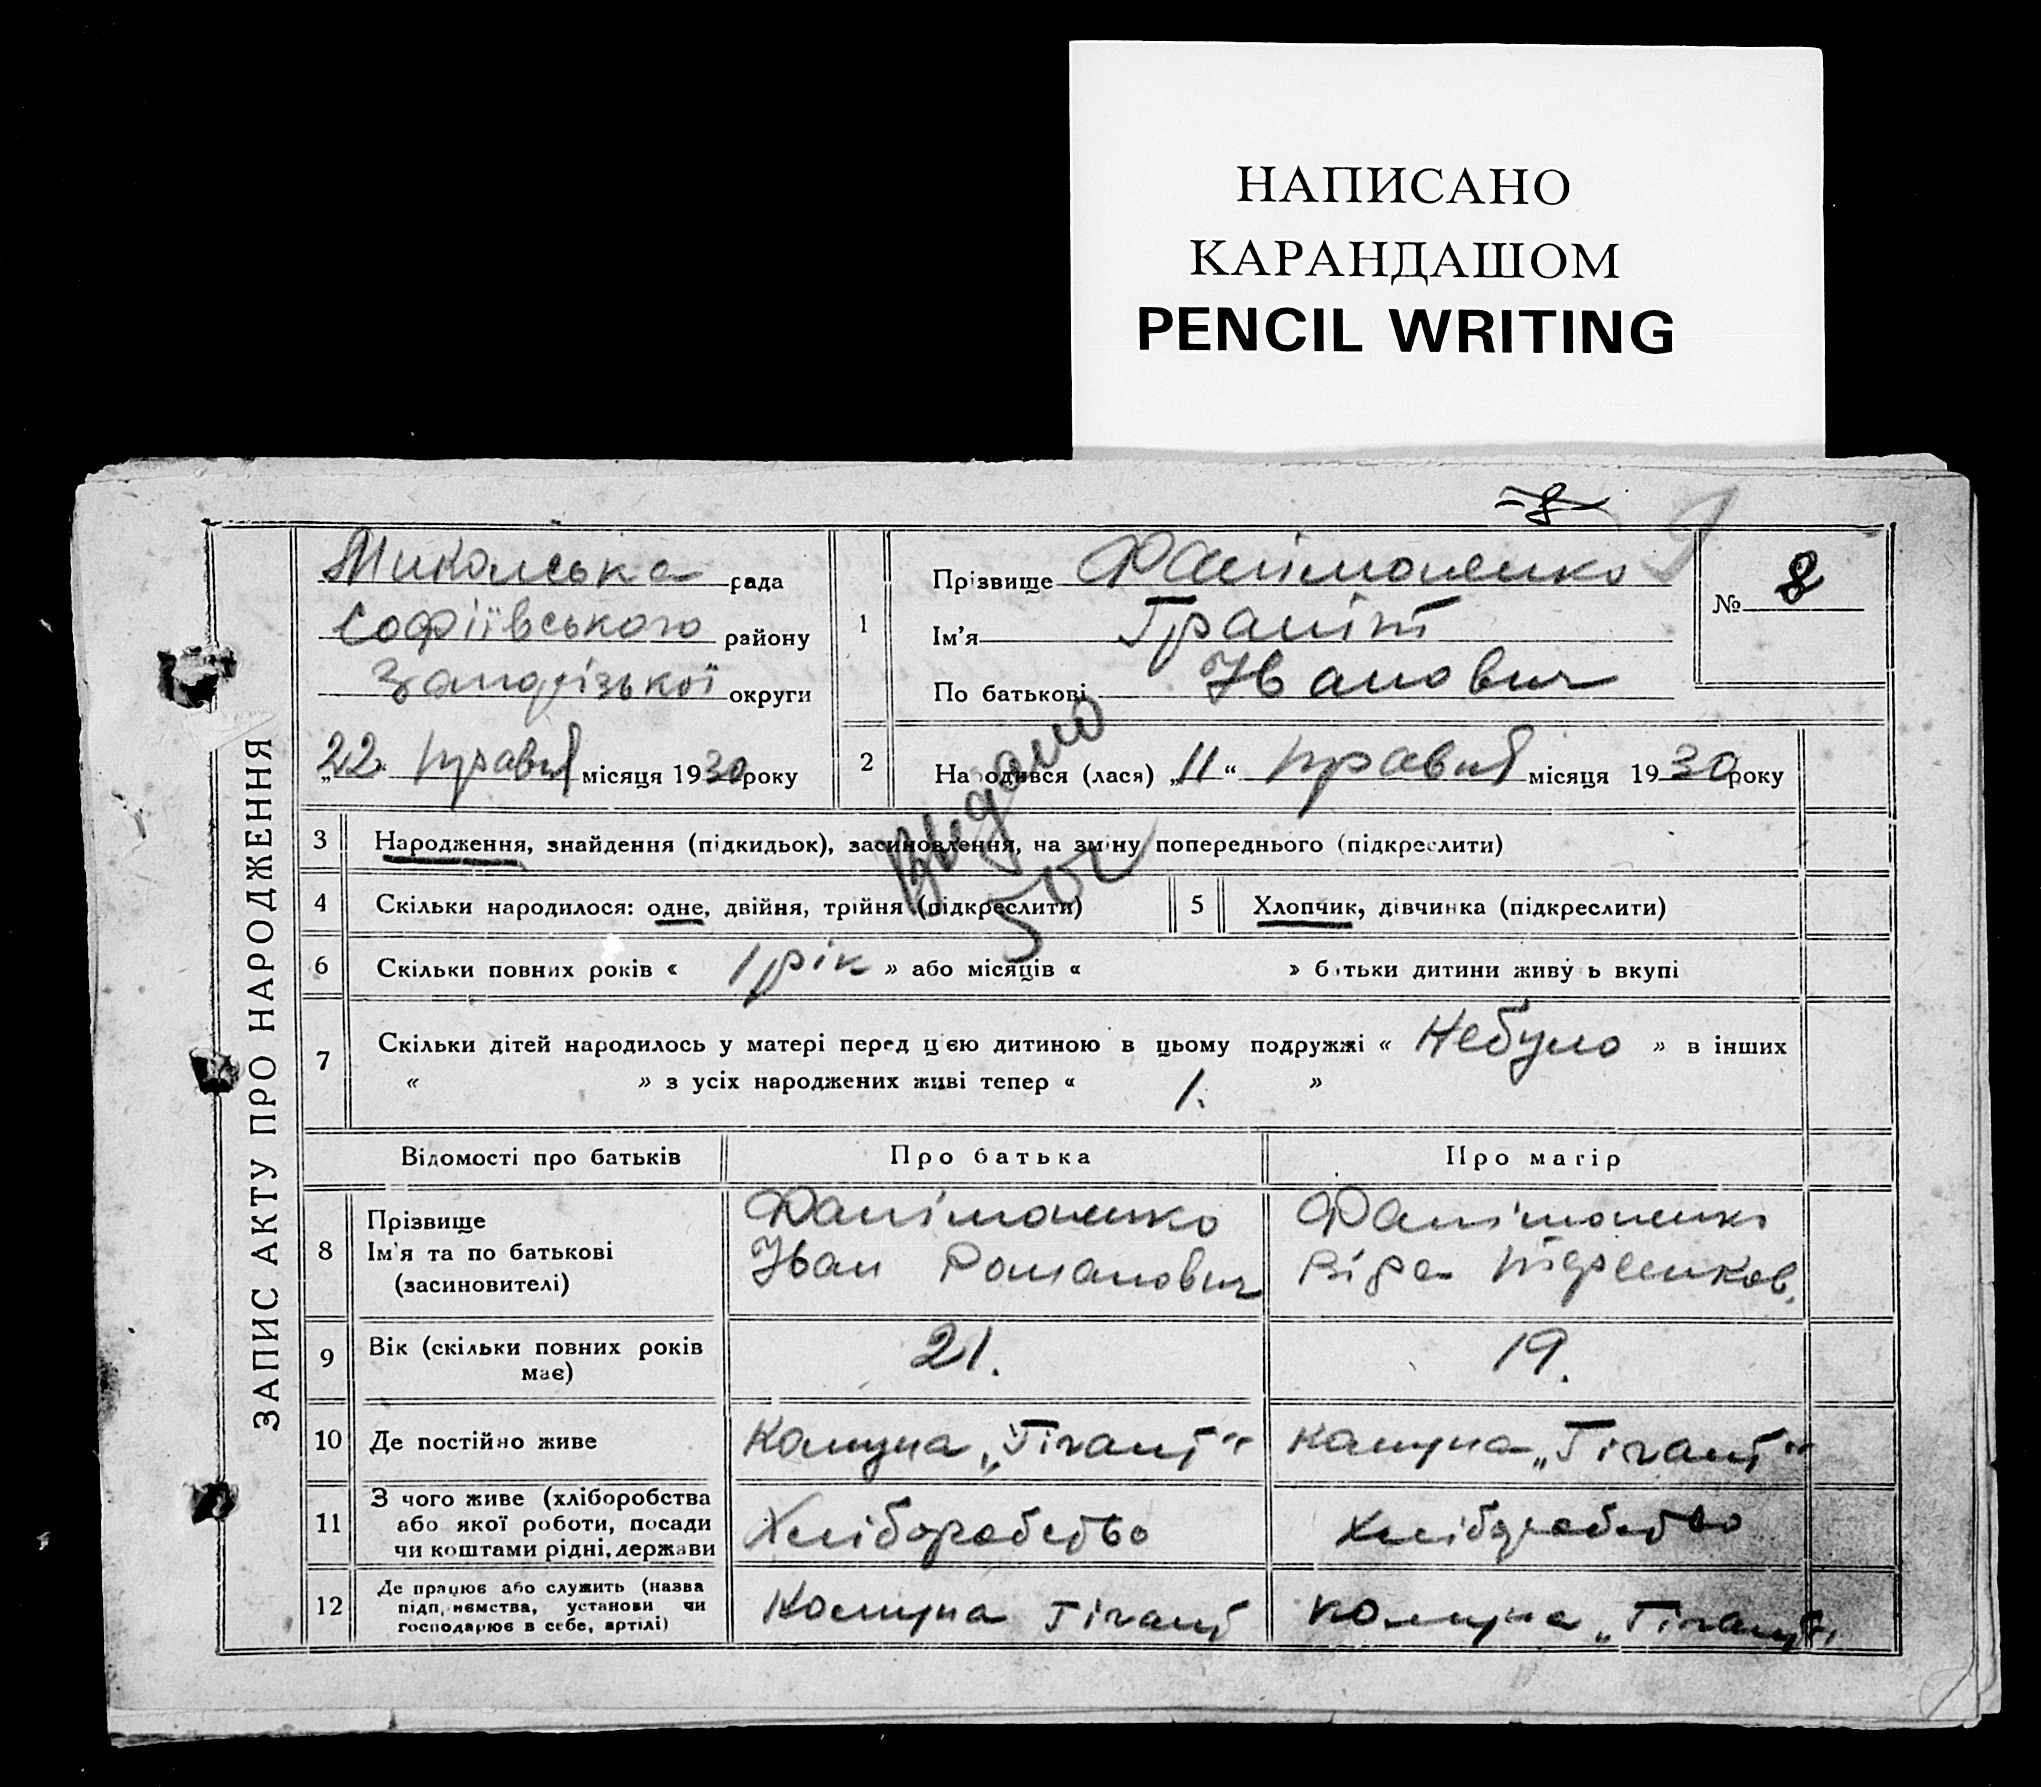 НАПИСАНО
КАРАНДАШОМ
PENCIL WRITING
8
ЗАПИС АКТУ ПРО НАРОДЖЕННЯ
Микольська рада
Софіївського району
Запорізької округи
„22 травня місяця 1930 року
1 Прізвище Фалімоненко
Ім'я Граніт
По батькові Іванович
№ 8
2 Народився (лася) „11“ травня місяця 1930 року
Выдано
3 Народження, знайдення (підкидьок), засиновлення, на зміну попереднього (підкреслити)
4 Скільки народилося: одне, двійня, трійня (підкреслити)
5 Хлопчик, дівчинка (підкреслити)
6 Скільки повних років « 1 рік » або місяців « » батьки дитини живуть вкупі
7 Скільки дітей народилось у матері перед цією дитиною в цьому подружжі « Небуло » в інших
« » з усіх народжених живі тепер « 1. »
Відомості про батьків Про батька Про матір
8 Прізвище
Ім'я та по батькові
(засиновителі)
Фалімоненко
Іван Романович
Фалімоненко
Віра
9 Вік (скільки повних років
має)
21.
19.
10 Де постійно живе
Комуна „Гігант“
Комуна „Гігант“
11 З чого живе (хліборобства
або якої роботи, посади
чи коштами рідні, держави
Хліборобство
Хліборобство
12 Де працює або служить (назва
підприємства, установи чи
господарює в себе, артілі)
Комуна Гігант
Комуна „Гігант“